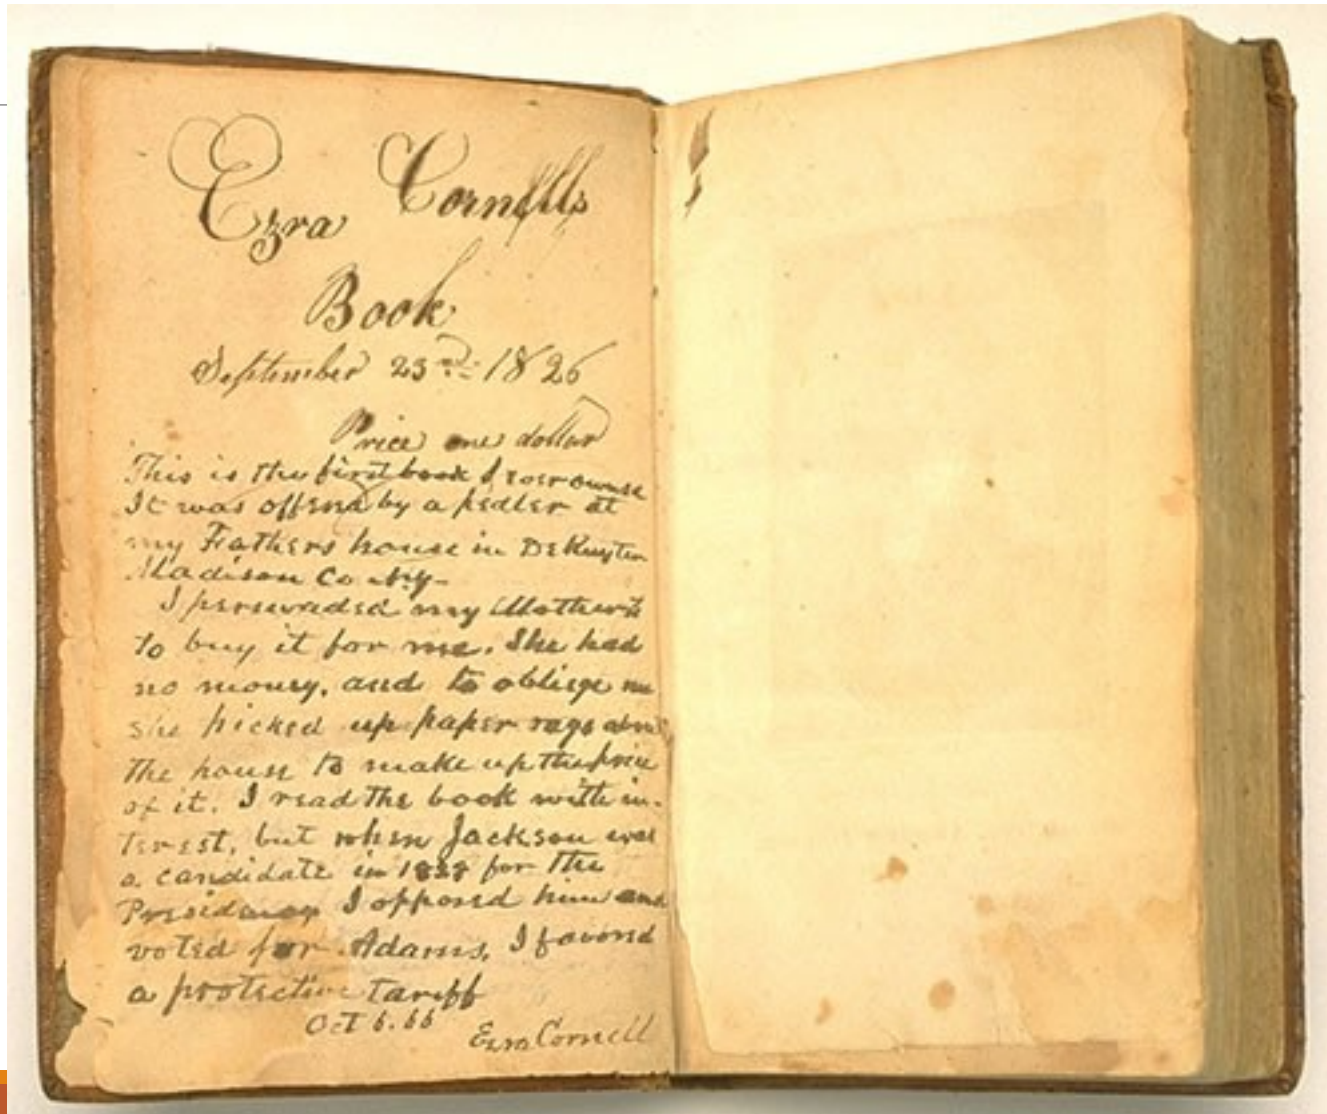 Ezra Cornells
Book
September 23rd 1826
Price one dollar
This is the first book I ever owned
It was offered by a pedler at
my Fathers house in DeRuyter
Madison Co NY-
I perswaded my Mother
to buy it for me. She had
no money, and to obliege me
she picked up paper rags about
the house to make up the price
of it. I read the book with in-
terest, but when Jackson was
a candidate in 1828 for the
Presidency I opposed him and
voted for Adams, I favord
a protective tariff
Oct 6. 66
Ezra Cornell